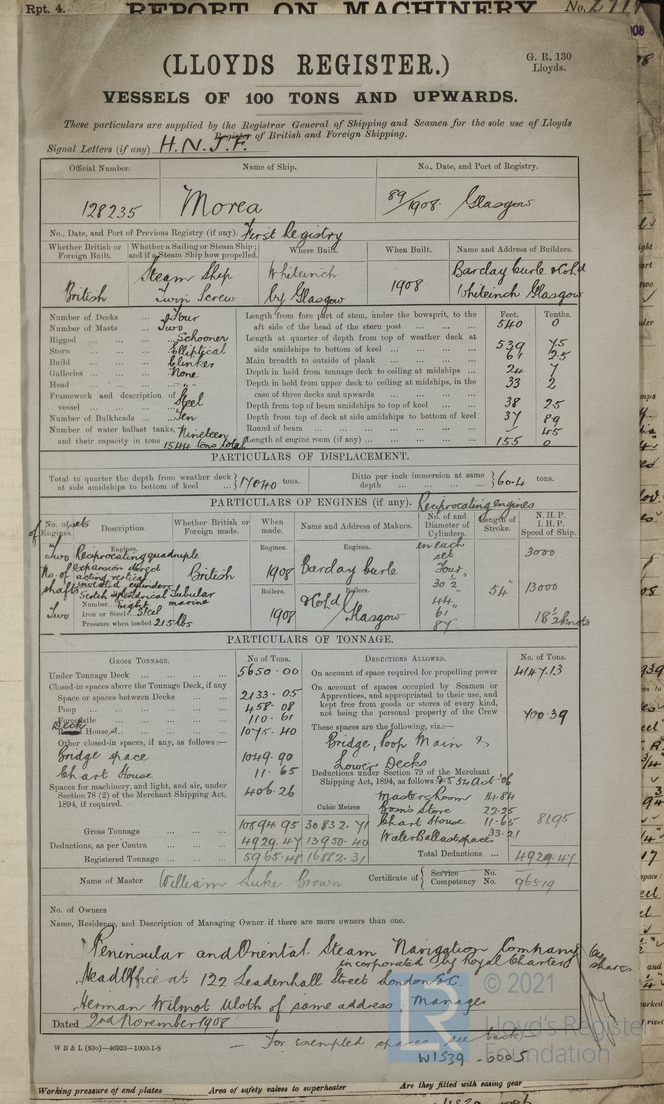 Rpt. 4. REPORT ON MACHINERY No.
(LLOYDS REGISTER.)
G. R. 130
Lloyds.
VESSELS OF 100 TONS AND UPWARDS.
These particulars are supplied by the Registrar General of Shipping and Seamen for the sole use of Lloyds
Register of British and Foreign Shipping.
Signal Letters (if any) H.N.J.F.
Official Number. Name of Ship. No., Date, and Port of Registry.
128235 Morea 89/1908. Glasgow
No., Date, and Port of Previous Registry (if any). First Registry
Whether British or Foreign Built. Whether a Sailing or Steam Ship; and if a Steam Ship how propelled. Where Built. When Built. Name and Address of Builders.
British Steam Ship Twin Screw Whiteinch by Glasgow 1908 Barclay Curle & Co Ld Whiteinch Glasgow
Number of Decks Four
Number of Masts Two
Rigged Schooner
Stern Elliptical
Build Clinker
Galleries None
Head
Framework and description of vessel Steel
Number of Bulkheads Ten
Number of water ballast tanks, and their capacity in tons Nineteen 1544 tons total
Feet. Tenths.
Length from fore part of stem, under the bowsprit, to the aft side of the head of the stern post 540 0
Length at quarter of depth from top of weather deck at side amidships to bottom of keel 539 75
Main breadth to outside of plank 61 25
Depth in hold from tonnage deck to ceiling at midships 24 7
Depth in hold from upper deck to ceiling at midships, in the case of three decks and upwards 33 2
Depth from top of beam amidships to top of keel 38 25
Depth from top of deck at side amidships to bottom of keel 37 89
Round of beam 45
Length of engine room (if any) 155 0
PARTICULARS OF DISPLACEMENT.
Total to quarter the depth from weather deck at side amidships to bottom of keel } 17040 tons. Ditto per inch immersion at same depth } 60.4 tons.
PARTICULARS OF ENGINES (if any). Reciprocating engines
No. of sets of Engines. Description. Whether British or Foreign made. When made. Name and Address of Makers. No. and Diameter of Cylinders. Length of Stroke. N.H.P. I.H.P. Speed of Ship.
Two
No. of shafts
Two
Engines.
Reciprocating quadruple
expansion direct
acting vertical
inverted cylinders
Scotch cylindrical tubular
Number Eight marine
Iron or Steel Steel
Pressure when loaded 215 lbs
British
Engines. 1908
Boilers. 1908
Engines.
Barclay Curle
Boilers.
& Co Ld Glasgow
in each set
Four
30½"
44"
61"
87"
54"
3000
13000
18½ knots
PARTICULARS OF TONNAGE.
GROSS TONNAGE. No of Tons.
Under Tonnage Deck 5650.00
Closed-in spaces above the Tonnage Deck, if any
Space or spaces between Decks 2133.05
Poop 458.08
Forecastle 110.61
Deck Houses 1075.40
Other closed-in spaces, if any, as follows:—
Bridge space 1049.90
Chart House 11.65
Spaces for machinery, and light, and air, under Section 78 (2) of the Merchant Shipping Act, 1894, if required. 406.26
Cubic Metres
Gross Tonnage 10894.95 30832.71
Deductions, as per Contra 4929.47 13950.40
Registered Tonnage 5965.48 16882.31
DEDUCTIONS ALLOWED. No. of Tons.
On account of space required for propelling power 4147.13
On account of spaces occupied by Seamen or Apprentices, and appropriated to their use, and kept free from goods or stores of every kind, not being the personal property of the Crew 700.39
These spaces are the following, viz.:—
Bridge, Poop Main &
Lower Decks
Deductions under Section 79 of the Merchant Shipping Act, 1894, as follows:
Masters Room 14.84
Bosn's Store 22.25
Chart House 11.65
Water Ballast spaces 33.21
81.95
Total Deductions 4929.47
Name of Master William Luke Brown Certificate of { Service No. Competency No. 96519
No. of Owners
Name, Residence, and Description of Managing Owner if there are more owners than one.
Peninsular and Oriental Steam Navigation Company 64 shares
incorporated by Royal Charter
Head Office at 122 Leadenhall Street London E.C.
Herman Wilmot Uloth of same address, Manager
Dated 2nd November 1908
For exempted spaces see back
W B & L (83o)—46923—1000-1-8
W1539-0005
© 2021
Lloyd's Register
Foundation
Working pressure of end plates Area of safety valves to superheater Are they fitted with easing gear